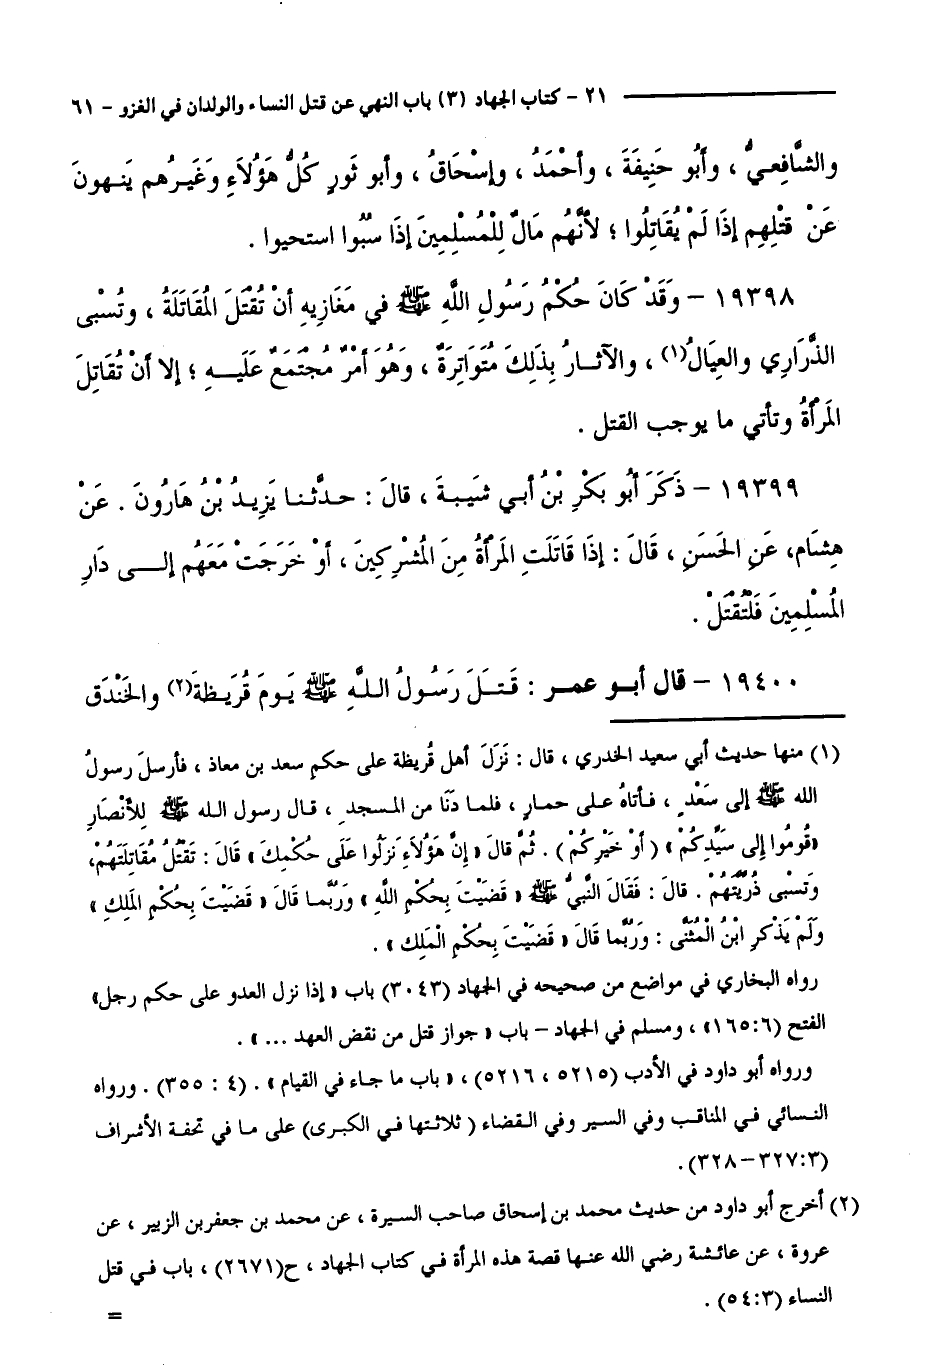 ٢١ - كتاب الجهاد (٣) باب النهي عن قتل النساء والولدان في الغزو - ٦١
والشَّافِعيُّ ، وأَبُو حَنِيفَةَ ، وأَحْمَدُ ، وإِسْحَاقُ ، وأبو ثَورٍ كُلُّ هَؤُلاَءِ وَغَيرُهم يَنهونَ
عَنْ قتْلِهِم إذَا لَمْ يُقَاتِلُوا ؛ لأنَّهُم مَالٌ لِلْمُسْلِمِينَ إِذَا سبُوا استحيوا .
١٩٣٩٨ - وَقَدْ كَانَ حُكْمُ رَسُولِ اللَّهِ ﷺ في مَغَازِيهِ أنْ تُقْتَلَ المُقَاتَلَةُ ، وتُسْبى
الذَّرَارِي والعِيَالُ(١) ، والآثــارُ بِذَلِكَ مُتَوَاتِرَةٌ ، وَهُوَ أَمْرٌ مُجْتَمَعٌ عَلَيــــهِ ؛ إلا أنْ تُقَاتِلَ
المَرأةُ وتأتي ما يوجب القتل .
١٩٣٩٩ - ذَكَرَ أبُو بَكْرِ بْنُ أبـي شَيبـةَ ، قالَ : حدَّثنـا يَزِيـدُ بْنُ هَارُونَ . عَنْ
هِشَام، عَنِ الحَسَنِ ، قَالَ : إذَا قَاتَلَتِ المَرْأَةُ مِنَ المُشْرِكِينَ ، أوْ خَرَجَتْ مَعَهُم إلــــى دَارِ
المُسْلِمِينَ فَلْتُقْتَلْ .
١٩٤٠٠ - قال أبــو عمــر : قَـتـلَ رَسُــولُ الـلَّـهِ ﷺ يَـومَ قُرَيـظةَ(٢) والخَنْدَق
(١) منها حديث أبي سعيد الخدري ، قال : نَزَلَ أهل قُريظة على حكمِ سعد بن معاذ ، فأرسلَ رسولُ
الله ﷺ إلى سَعْدٍ ، فـأتاهُ علـى حمـارٍ ، فلمـا دَنَا من المـسـجـد ، قـال رسـول الـله ﷺ لِلأنْصَارِ
«قُومُوا إلى سَيِّدِكُمْ» ( أوْ خَيْرِكُم ) . ثُمَّ قالَ « إنَّ هَؤُلاَءِ نَزَلُوا عَلَى حُكْمِكَ » قَالَ : تَقْتُلُ مُقَاتِلَتَهُمْ،
وَتَسْبى ذُرِّيَّتَهُمْ . قالَ : فَقَالَ النَّبيُّ ﷺ « قَضَيْتَ بِحُكْمِ اللَّهِ » وَرُبَّمـا قَالَ « قَضَيْتَ بِحُكْمِ المَلِكِ »
وَلَمْ يَذْكرِ ابْنُ الْمُثَنَّى : وَرُبَّمَا قَالَ « قَضَيْتَ بِحُكْمِ الْمَلِك » .
رواه البخاري في مواضع من صحيحه في الجهاد (٣٠٤٣) باب « إذا نزل العدو على حكم رجل»
الفتح (١٦٥:٦) ، ومسلم في الجهاد - باب « جواز قتل من نقض العهد ... » .
ورواه أبو داود في الأدب (٥٢١٥ ، ٥٢١٦) ، « باب ما جـاء في القيام » . (٤ : ٣٥٥) . ورواه
النسائي فـي المناقـب وفي السير وفـي القضاء ( ثلاثتها فـي الكبرى) على مـا في تحفـة الأشراف
(٣٢٧:٣-٣٢٨).
(٢) أخرج أبو داود من حديث محمد بن إسحاق صاحب السيرة ، عن محمد بن جعفربن الزبير ، عن
عروة ، عن عائشة رضي الله عنـها قصة هذه المرأة فـي كتاب الجهاد ، ح(٢٦٧١) ، باب فـي قتل
النساء (٥٤:٣) .
=